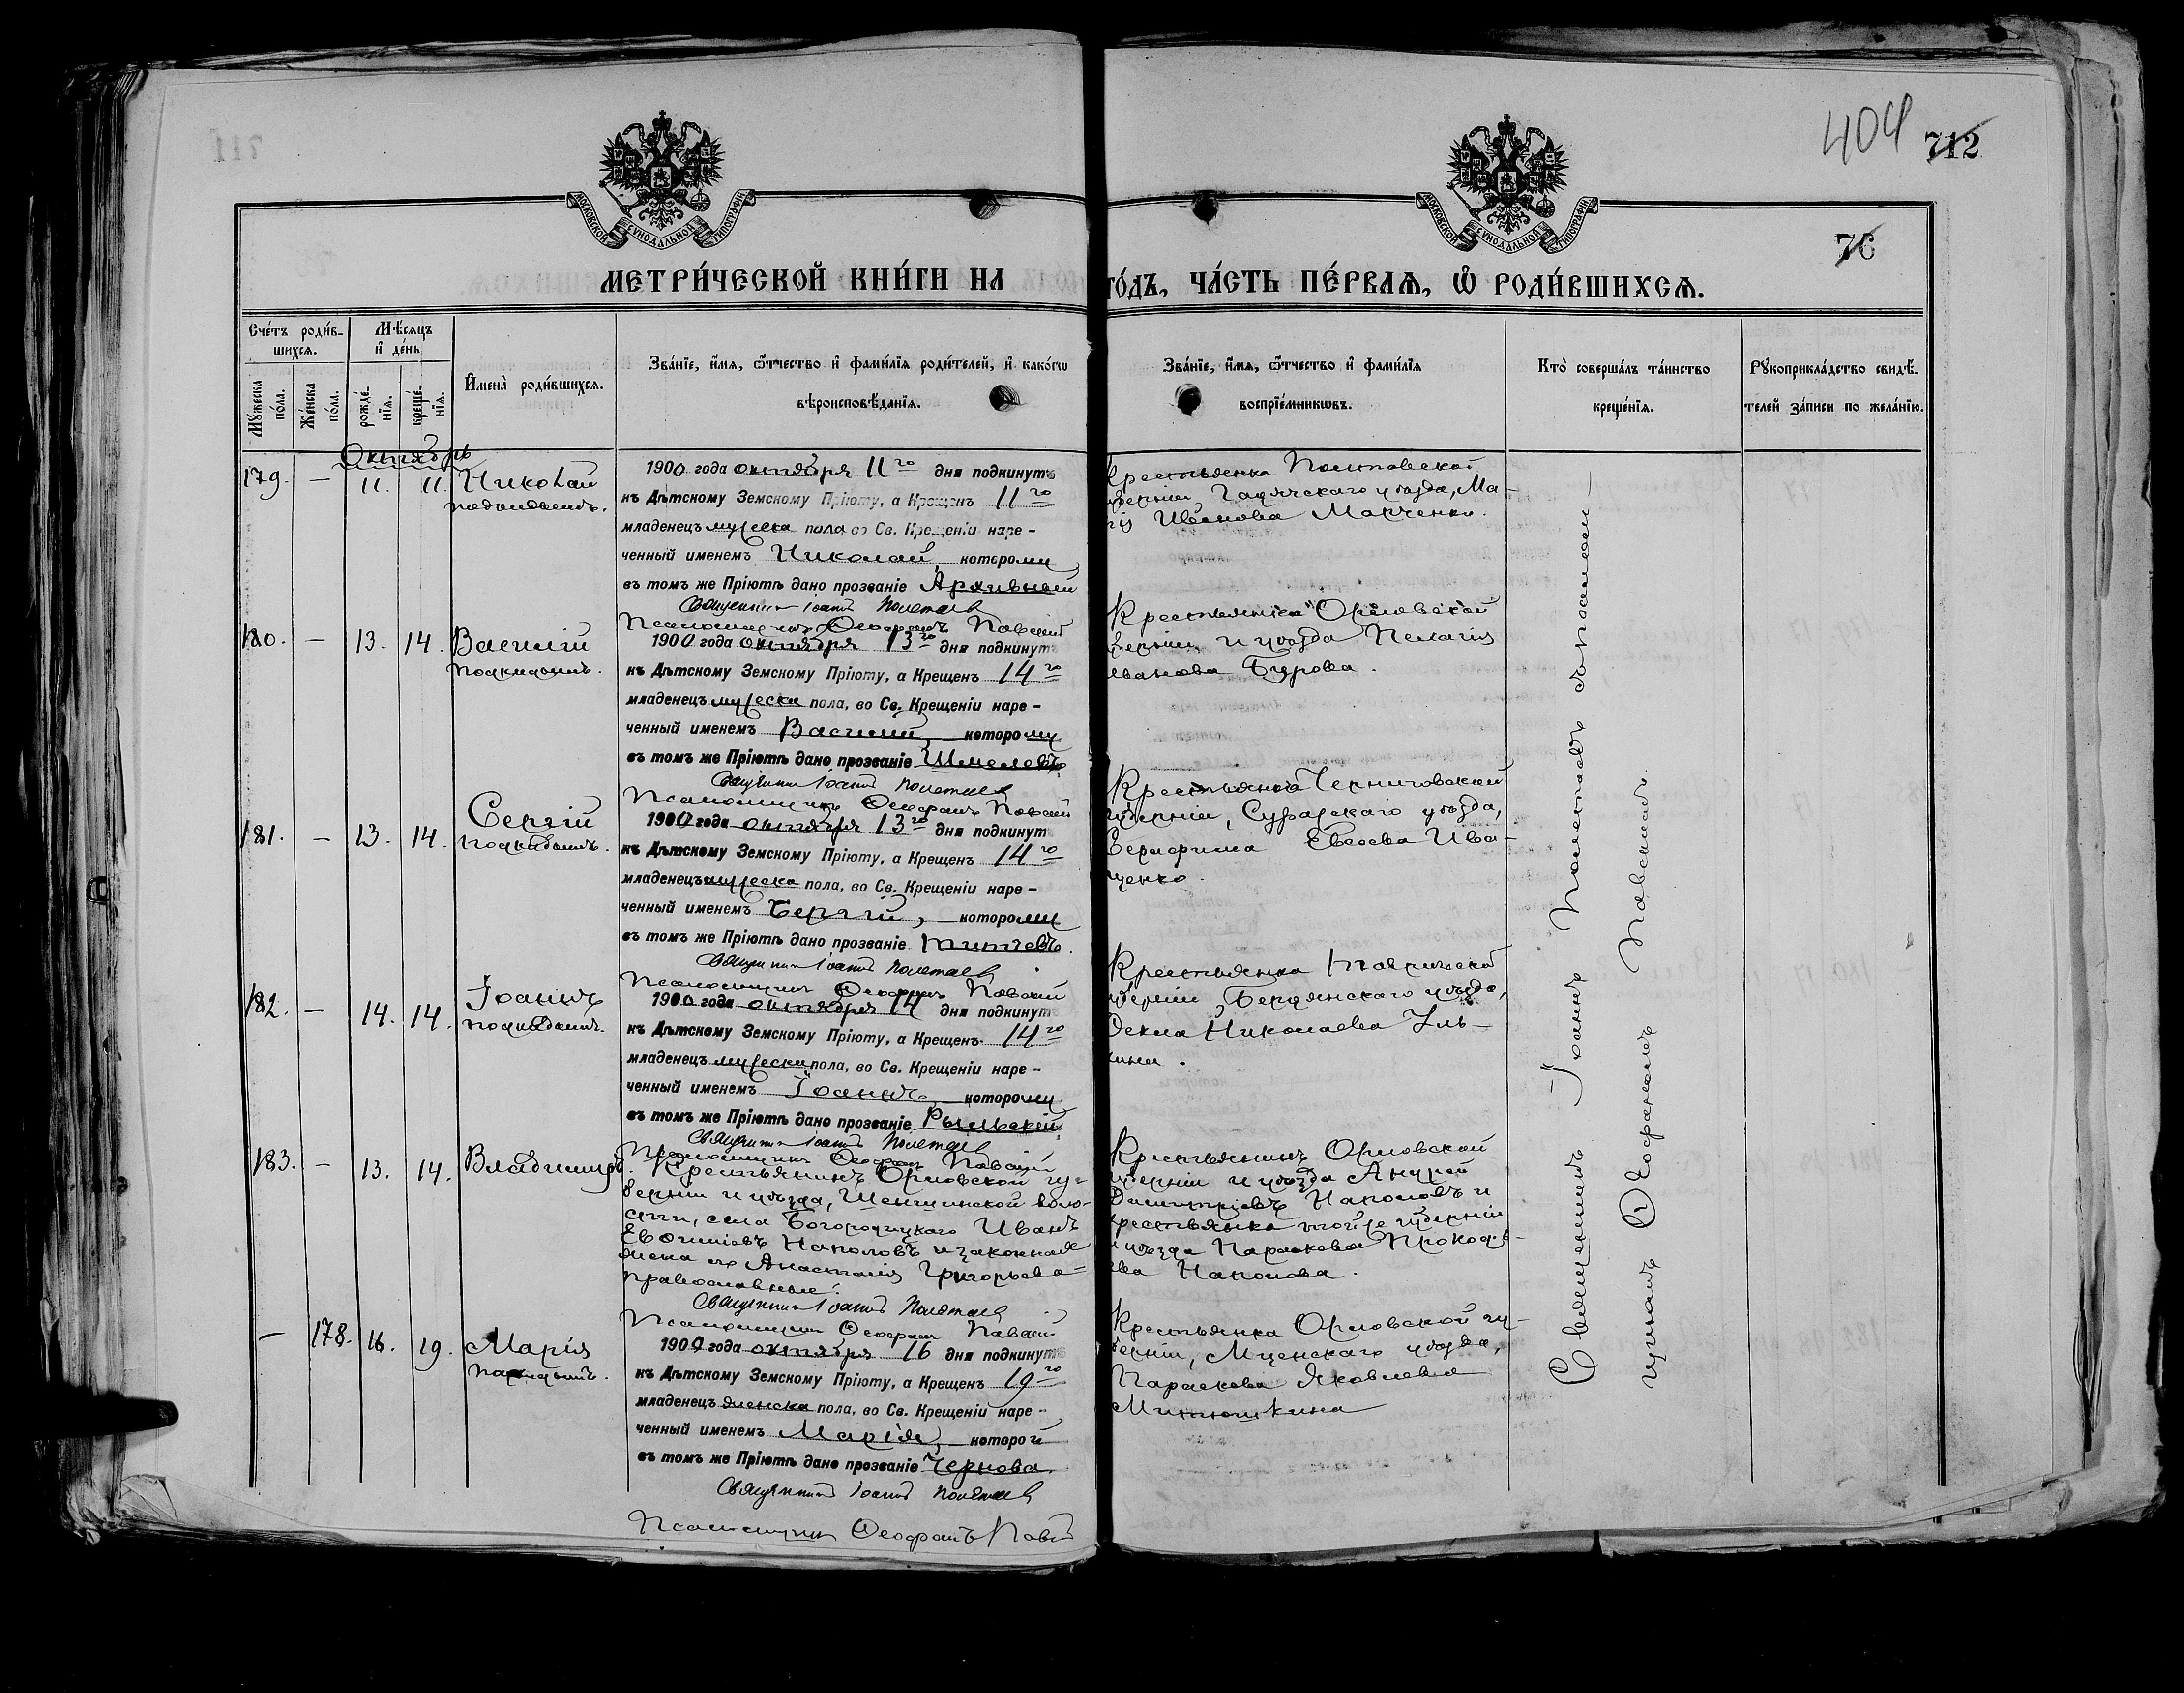 404
712
МОСКОВСКОЙ СѴНОДАЛЬНОЙ ТИПОГРАФІИ
МОСКОВСКОЙ СѴНОДАЛЬНОЙ ТИПОГРАФІИ
76
МЕТРИ́ЧЕСКОЙ КНИ́ГИ НА
ГО́ДЪ, ЧА́СТЬ ПЕ́РВАѦ, Ѿ РОДИ́ВШИХСѦ.
Сче́тъ роди́в-
шихсѧ.
Мѣ́сѧцъ
и҆ де́нь
Мꙋ́жеска
по́ла.
Же́нска
по́ла.
рожде́-
нїѧ.
креще́-
нїѧ.
И҆мена̀ роди́вшихсѧ.
Зва́нїе, и҆́мѧ, ѻ҆́тчество и҆ фами́лїѧ роди́телей, и҆ како́гѡ
вѣроисповѣ́данїѧ.
Зва́нїе, и҆́мѧ, ѻ҆́тчество и҆ фами́лїѧ
воспрїе́мникѡвъ.
Кто̀ соверша́лъ та́инство
креще́нїѧ.
Рꙋкоприкла́дство свидѣ́-
телей за́писи по жела́нїю.
Октябрь
179. — 11. 11. Николай
подкидышъ.
1900 года октября 11го дня подкинутъ
къ Дѣтскому Земскому Пріюту, а Крещенъ 11го
младенецъ мужеска пола, во Св. Крещеніи наре-
ченный именемъ Николай, которому
въ томъ же Пріютѣ дано прозваніе Архивный
Священникъ Іоаннъ Полетаевъ
Псаломщикъ Ѳеофанъ Павскій
Крестьянка Полтавской
губерніи, Гадячскаго уѣзда, Ма-
рія Иванова Макченко.
180. — 13. 14. Василій
подкидышъ.
1900 года октября 13го дня подкинутъ
къ Дѣтскому Земскому Пріюту, а Крещенъ 14го
младенецъ мужеска пола, во Св. Крещеніи наре-
ченный именемъ Василій, которому
въ томъ же Пріютѣ дано прозваніе Шмелевъ.
Священникъ Іоаннъ Полетаевъ
Псаломщикъ Ѳеофанъ Павскій
Крестьянка Орловской
губерніи и уѣзда Пелагія
Иванова Бурова.
181. — 13. 14. Сергій
подкидышъ.
1900 года октября 13го дня подкинутъ
къ Дѣтскому Земскому Пріюту, а Крещенъ 14го
младенецъ мужеска пола, во Св. Крещеніи наре-
ченный именемъ Сергій, которому
въ томъ же Пріютѣ дано прозваніе Титлевъ.
Священникъ Іоаннъ Полетаевъ
Псаломщикъ Ѳеофанъ Павскій
Крестьянка Черниговской
губерніи, Суражскаго уѣзда,
Серафима Евсеева Ива-
щенко.
182. — 14. 14. Іоаннъ
подкидышъ.
1900 года октября 14 дня подкинутъ
къ Дѣтскому Земскому Пріюту, а Крещенъ 14го
младенецъ мужеска пола, во Св. Крещеніи наре-
ченный именемъ Іоаннъ, которому
въ томъ же Пріютѣ дано прозваніе Рыльскій.
Священникъ Іоаннъ Полетаевъ
Псаломщикъ Ѳеофанъ Павскій
Крестьянка Таврической
губерніи, Бердянскаго уѣзда,
Ѳекла Николаева Уль-
кина.
183. — 13. 14. Владимиръ.
Крестьянинъ Орловской гу-
берніи и уѣзда, Шеншинской воло-
сти, села Богородицкаго Иванъ
Евѳиміевъ Наполовъ и законная
жена его Анастасія Григорьева-
православные.
Священникъ Іоаннъ Полетаевъ
Псаломщикъ Ѳеофанъ Павскій
Крестьянинъ Орловской
губерніи и уѣзда Андрей
Димитріевъ Наполовъ и
крестьянка той же губерніи
и уѣзда Параскева Прокофь-
ева Наполова.
— 178. 16. 19. Марія
подкидышъ.
1900 года октября 16 дня подкинутъ
къ Дѣтскому Земскому Пріюту, а Крещенъ 19го
младенецъ женска пола, во Св. Крещеніи наре-
ченный именемъ Марія, которой
въ томъ же Пріютѣ дано прозваніе Чернова.
Священникъ Іоаннъ Полетаевъ
Псаломщикъ Ѳеофанъ Павскій
Крестьянка Орловской гу-
берніи, Мценскаго уѣзда,
Параскева Яковлева
Митюшкина
Священникъ Іоаннъ Полетаевъ съ псалом-
щикомъ Ѳеофаномъ Павскимъ.